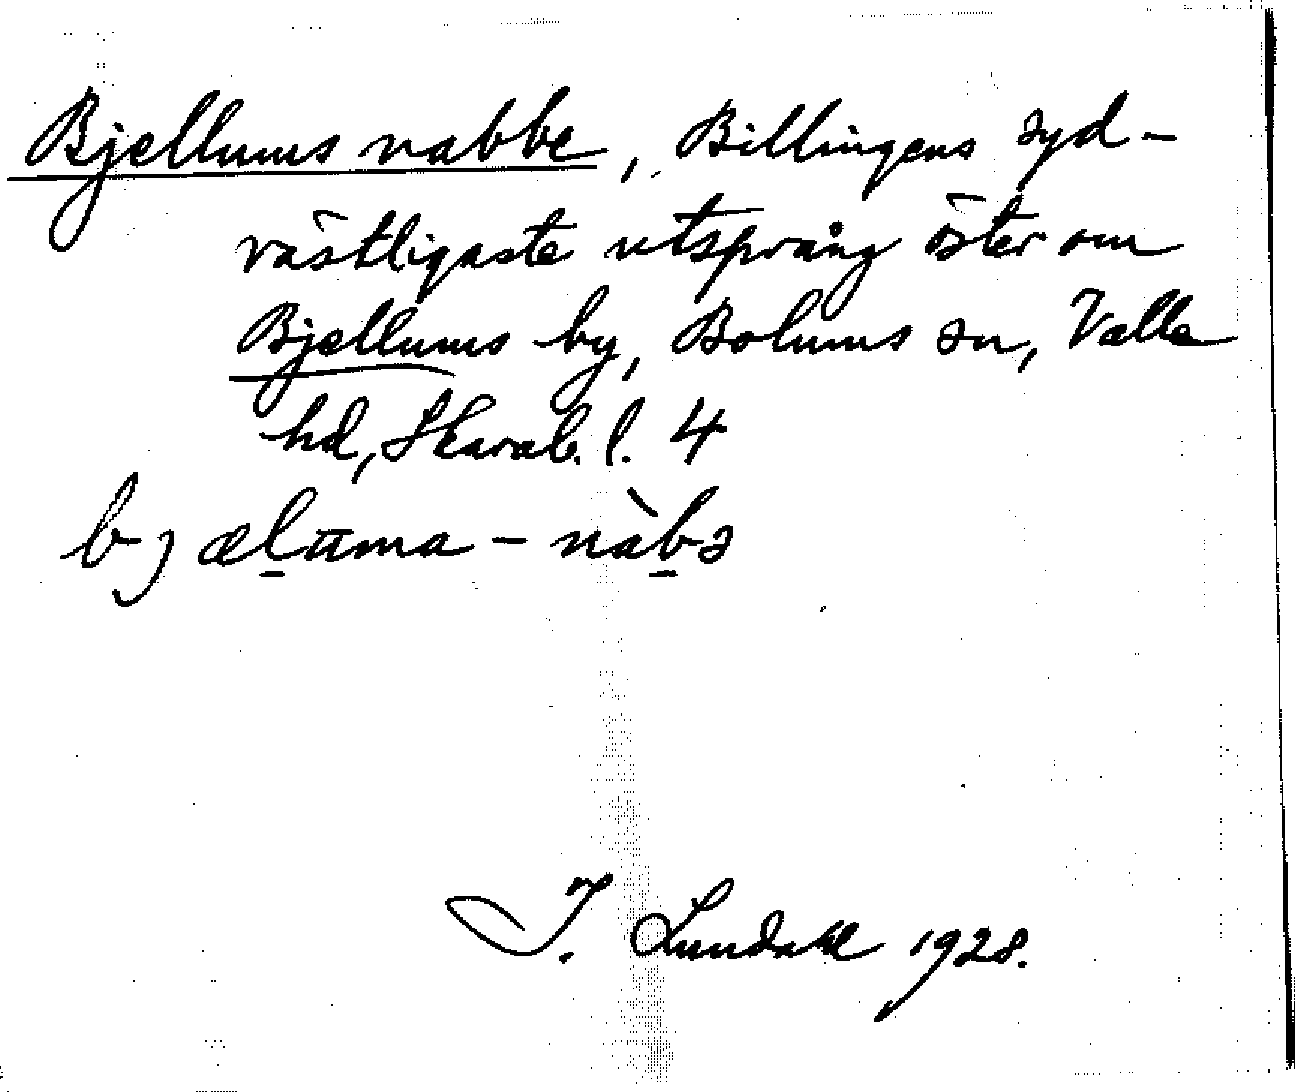 Bjellums nabbe, Billingens syd-
västligaste utsprång öster om
Bjellums by, Bolums sn, Valle
hd, Skarab. l. 4
bjæl̲ūma - nàb̲ə
I. Lundahl 1928.